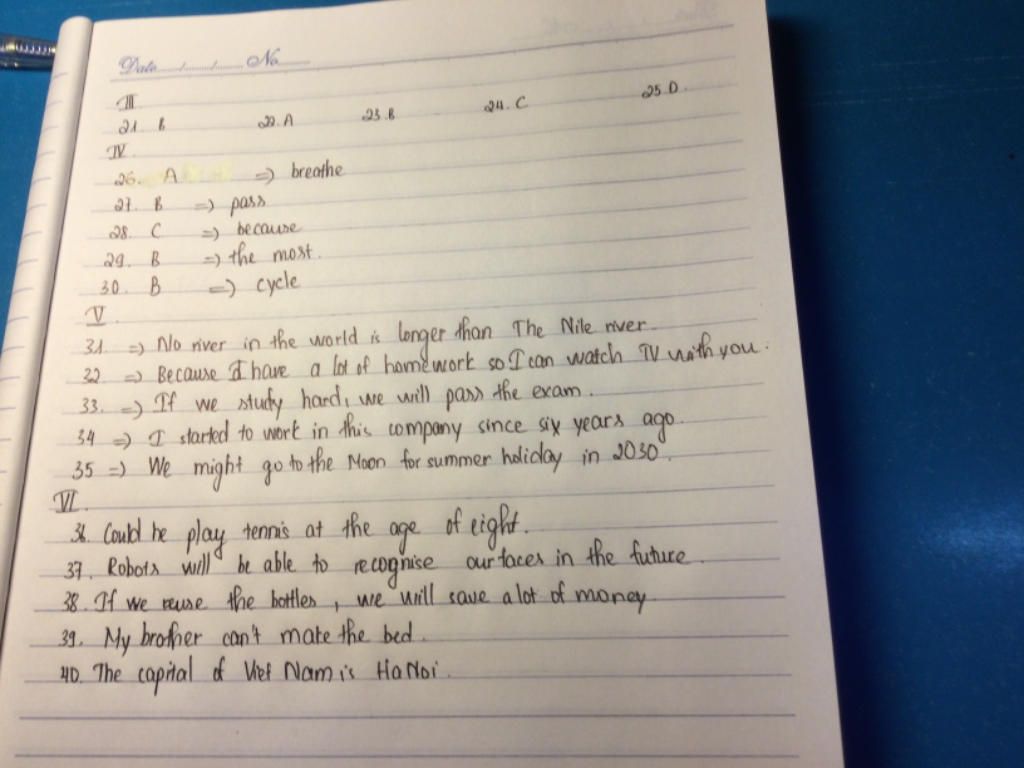 Date ..../..../.... No
III
21. B 22. A 23. B 24. C 25. D.
IV
26. A => breathe
27. B => pass
28. C => because
29. B => the most.
30. B => cycle
V
31. => No river in the world is longer than The Nile river.
32 => Because I have a lot of homework so I can watch TV with you.
33. => If we study hard, we will pass the exam.
34 => I started to work in this company since six years ago.
35 => We might go to the Moon for summer holiday in 2030.
VI.
36. Could he play tennis at the age of eight.
37. Robots will be able to recognise our faces in the future.
38. If we reuse the bottles, we will save a lot of money
39. My brother can't make the bed.
40. The capital of Viet Nam is Ha Noi.